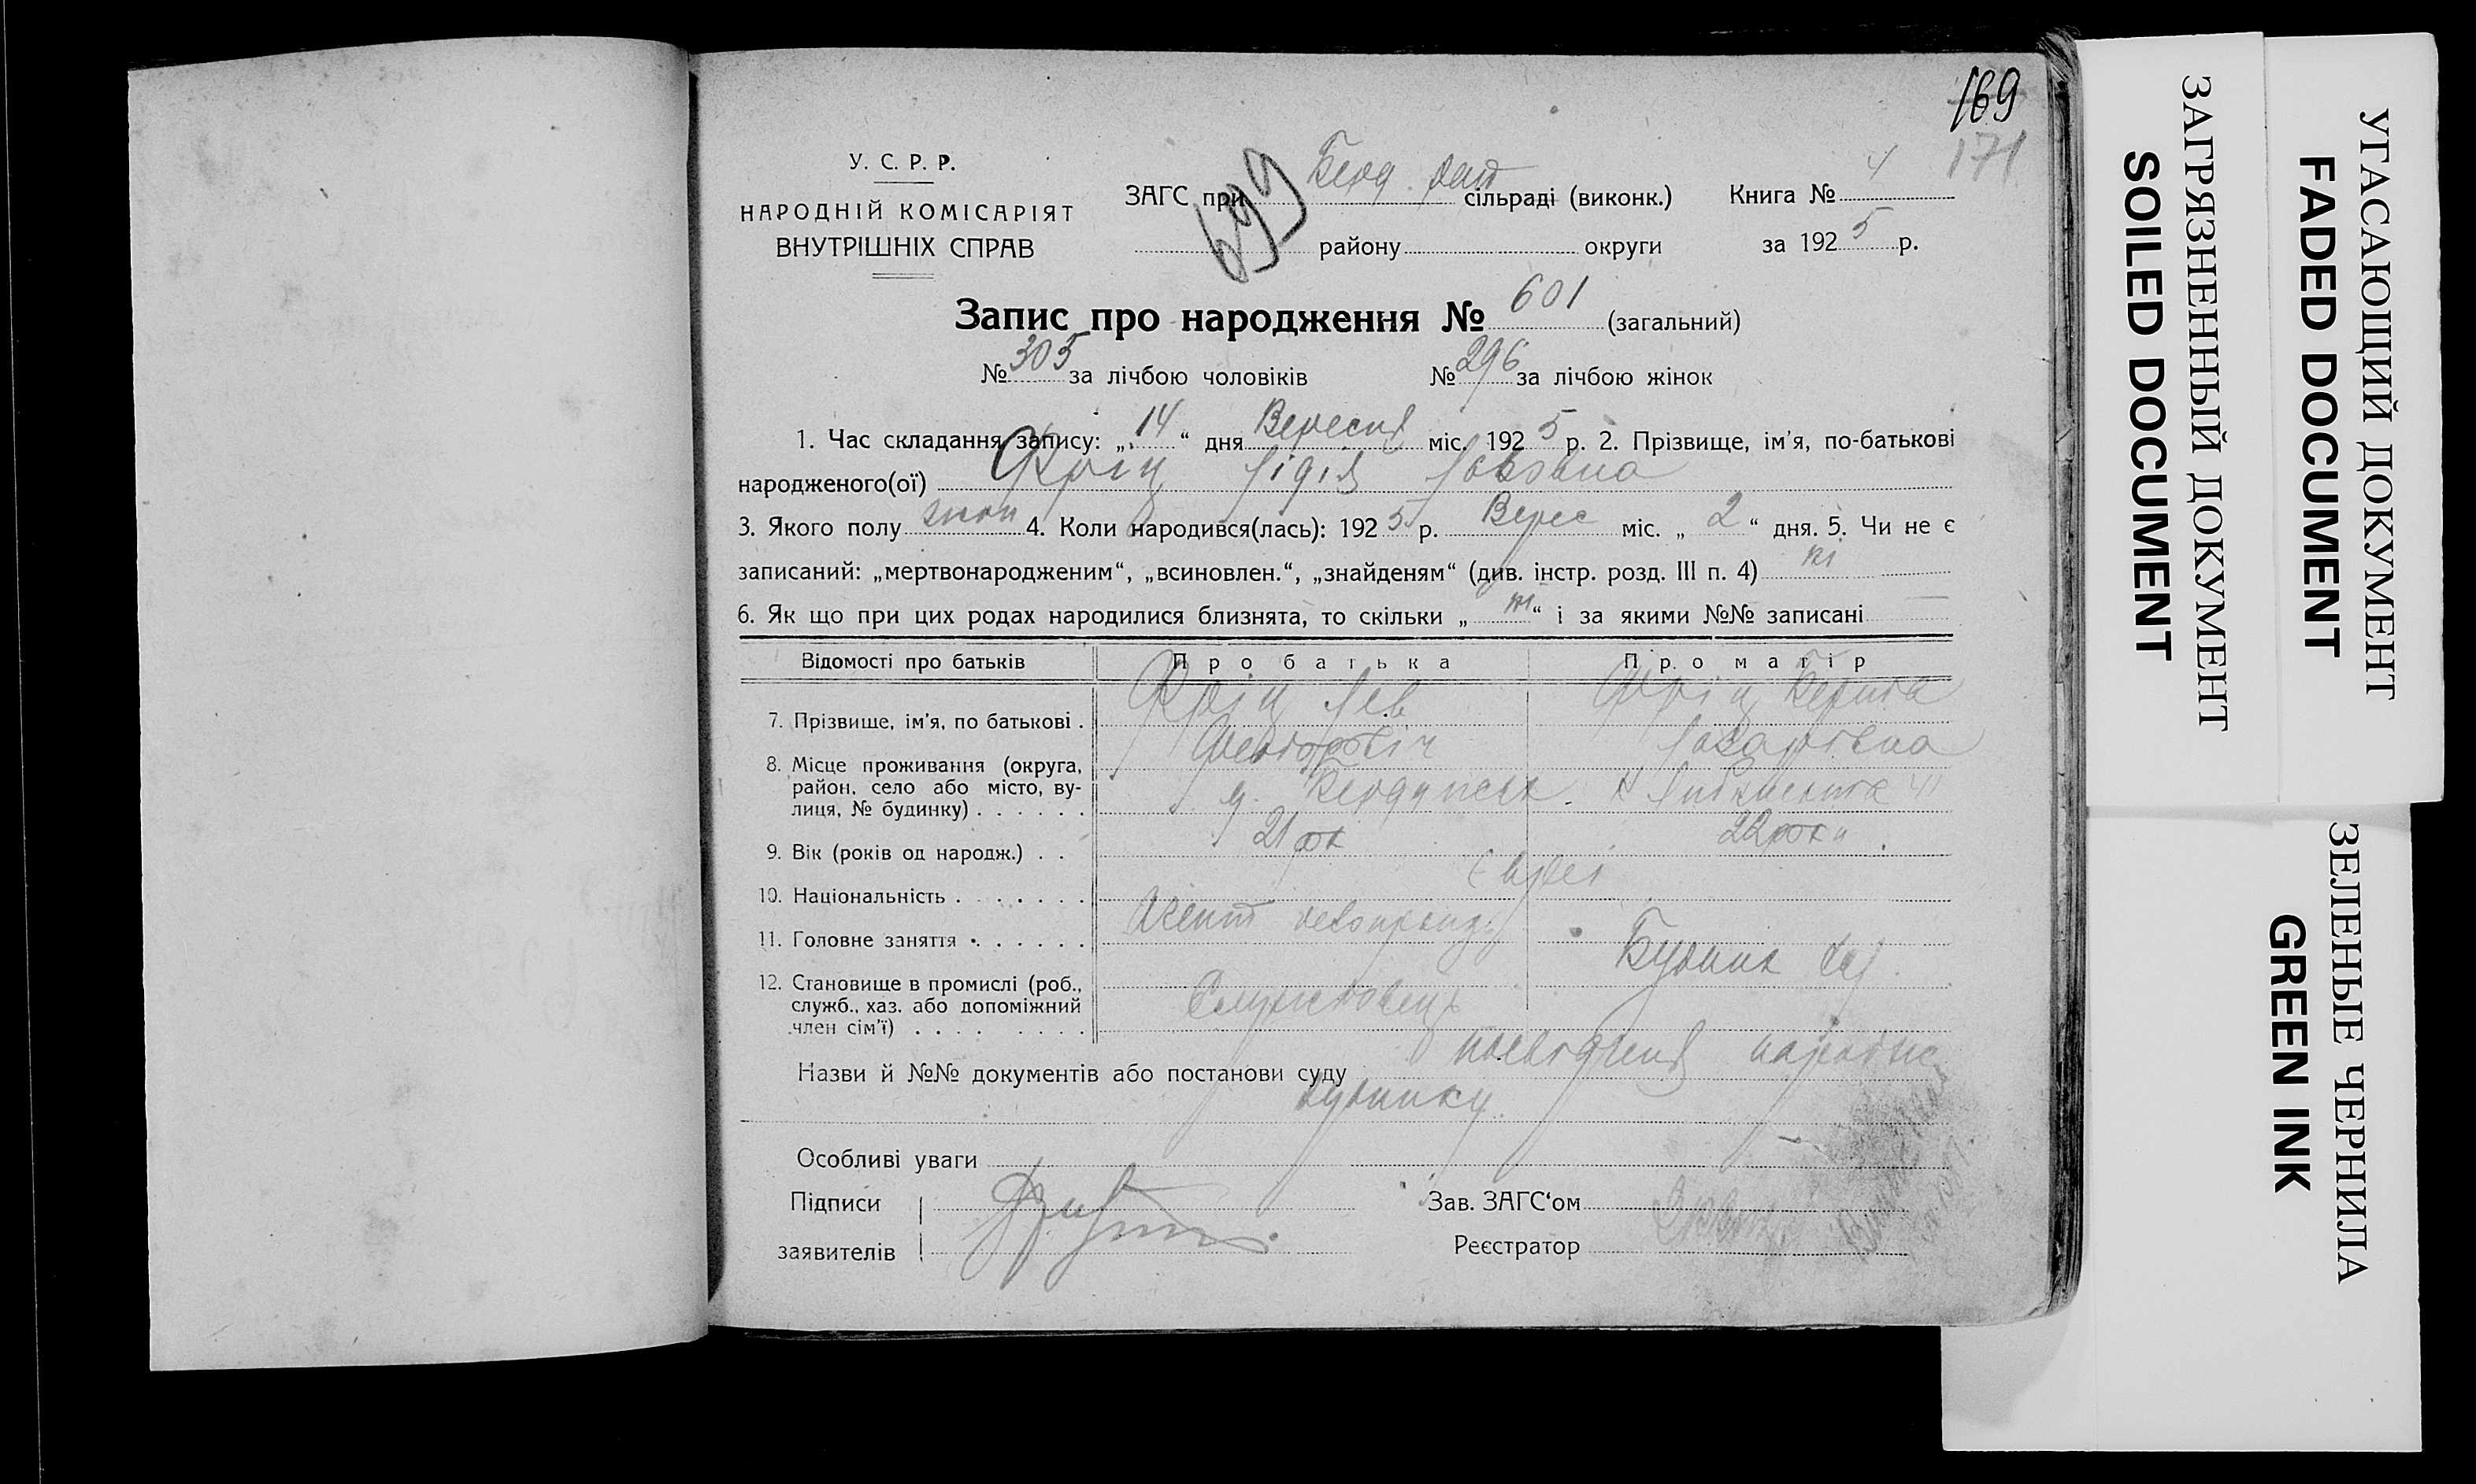 169
171
У. С. Р. Р.
НАРОДНІЙ КОМІСАРІЯТ
ВНУТРІШНІХ СПРАВ
699
ЗАГС при Берд. сільраді (виконк.) Книга № 4
району округи за 1925 р.
Запис про народження № 601 (загальний)
№ 305 за лічбою чоловіків № 296 за лічбою жінок
1. Час складання запису: „14“ дня Вересня міс. 1925 р. 2. Прізвище, ім'я, по-батькові
народженого(ої) Фріц Лідія Львовна
3. Якого полу жон 4. Коли народився(лась): 1925 р. Верес міс. „2“ дня. 5. Чи не є
записаний: „мертвонародженим“, „всиновлен.“, „знайденям“ (див. інстр. розд. III п. 4) ні
6. Як що при цих родах народилися близнята, то скільки „ні“ і за якими №№ записані
Відомості про батьків Про батька Про матір
7. Прізвище, ім'я, по батькові . Фріц Лев Фріц Берта
8. Місце проживання (округа, район, село або місто, вулиця, № будинку) . . . . . . Лазарівна
9. Вік (років од народж.) . . 21 рік 22 роки
10. Національність . . . . . . . Євреї
11. Головне заняття . . . . . . Агент
12. Становище в промислі (роб., служб., хаз. або допоміжний член сім'ї) . . . . . . . . Службовець
Назви й №№ документів або постанови суду посвідченя
будинку
Особливі уваги
Підписи Зав. ЗАГС'ом
заявителів Реєстратор
УГАСАЮЩИЙ ДОКУМЕНТ
FADED DOCUMENT
ЗАГРЯЗНЕННЫЙ ДОКУМЕНТ
SOILED DOCUMENT
ЗЕЛЕНЫЕ ЧЕРНИЛА
GREEN INK